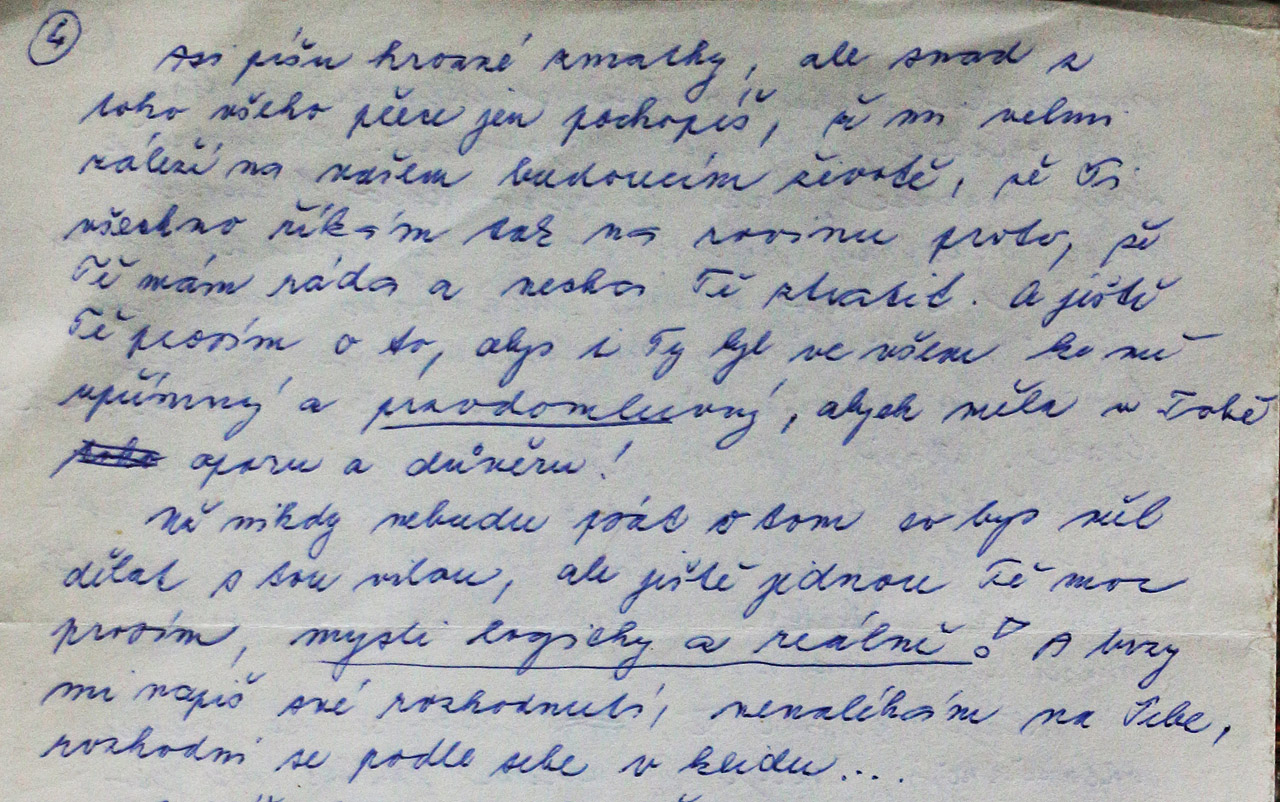 4
Asi píšu hrozné zmatky, ale snad z
toho všeho přece jen pochopíš, že mi velmi
záleží na našem budoucím životě, že Ti
všechno říkám tak na rovinu proto, že
Tě mám ráda a nechci Tě ztratit. A ještě
Tě prosím o to, abys i Ty byl ve všem ke mě
upřímný a pravdomluvný, abych měla v Tobě
oporu a důvěru!
Už nikdy nebudu psát o tom co bys měl
dělat s tou vilou, ale ještě jednou Tě moc
prosím, mysli logicky a reálně! A brzy
mi napiš své rozhodnutí, nenaléhám na Tebe,
rozhodni se podle sebe v klidu....